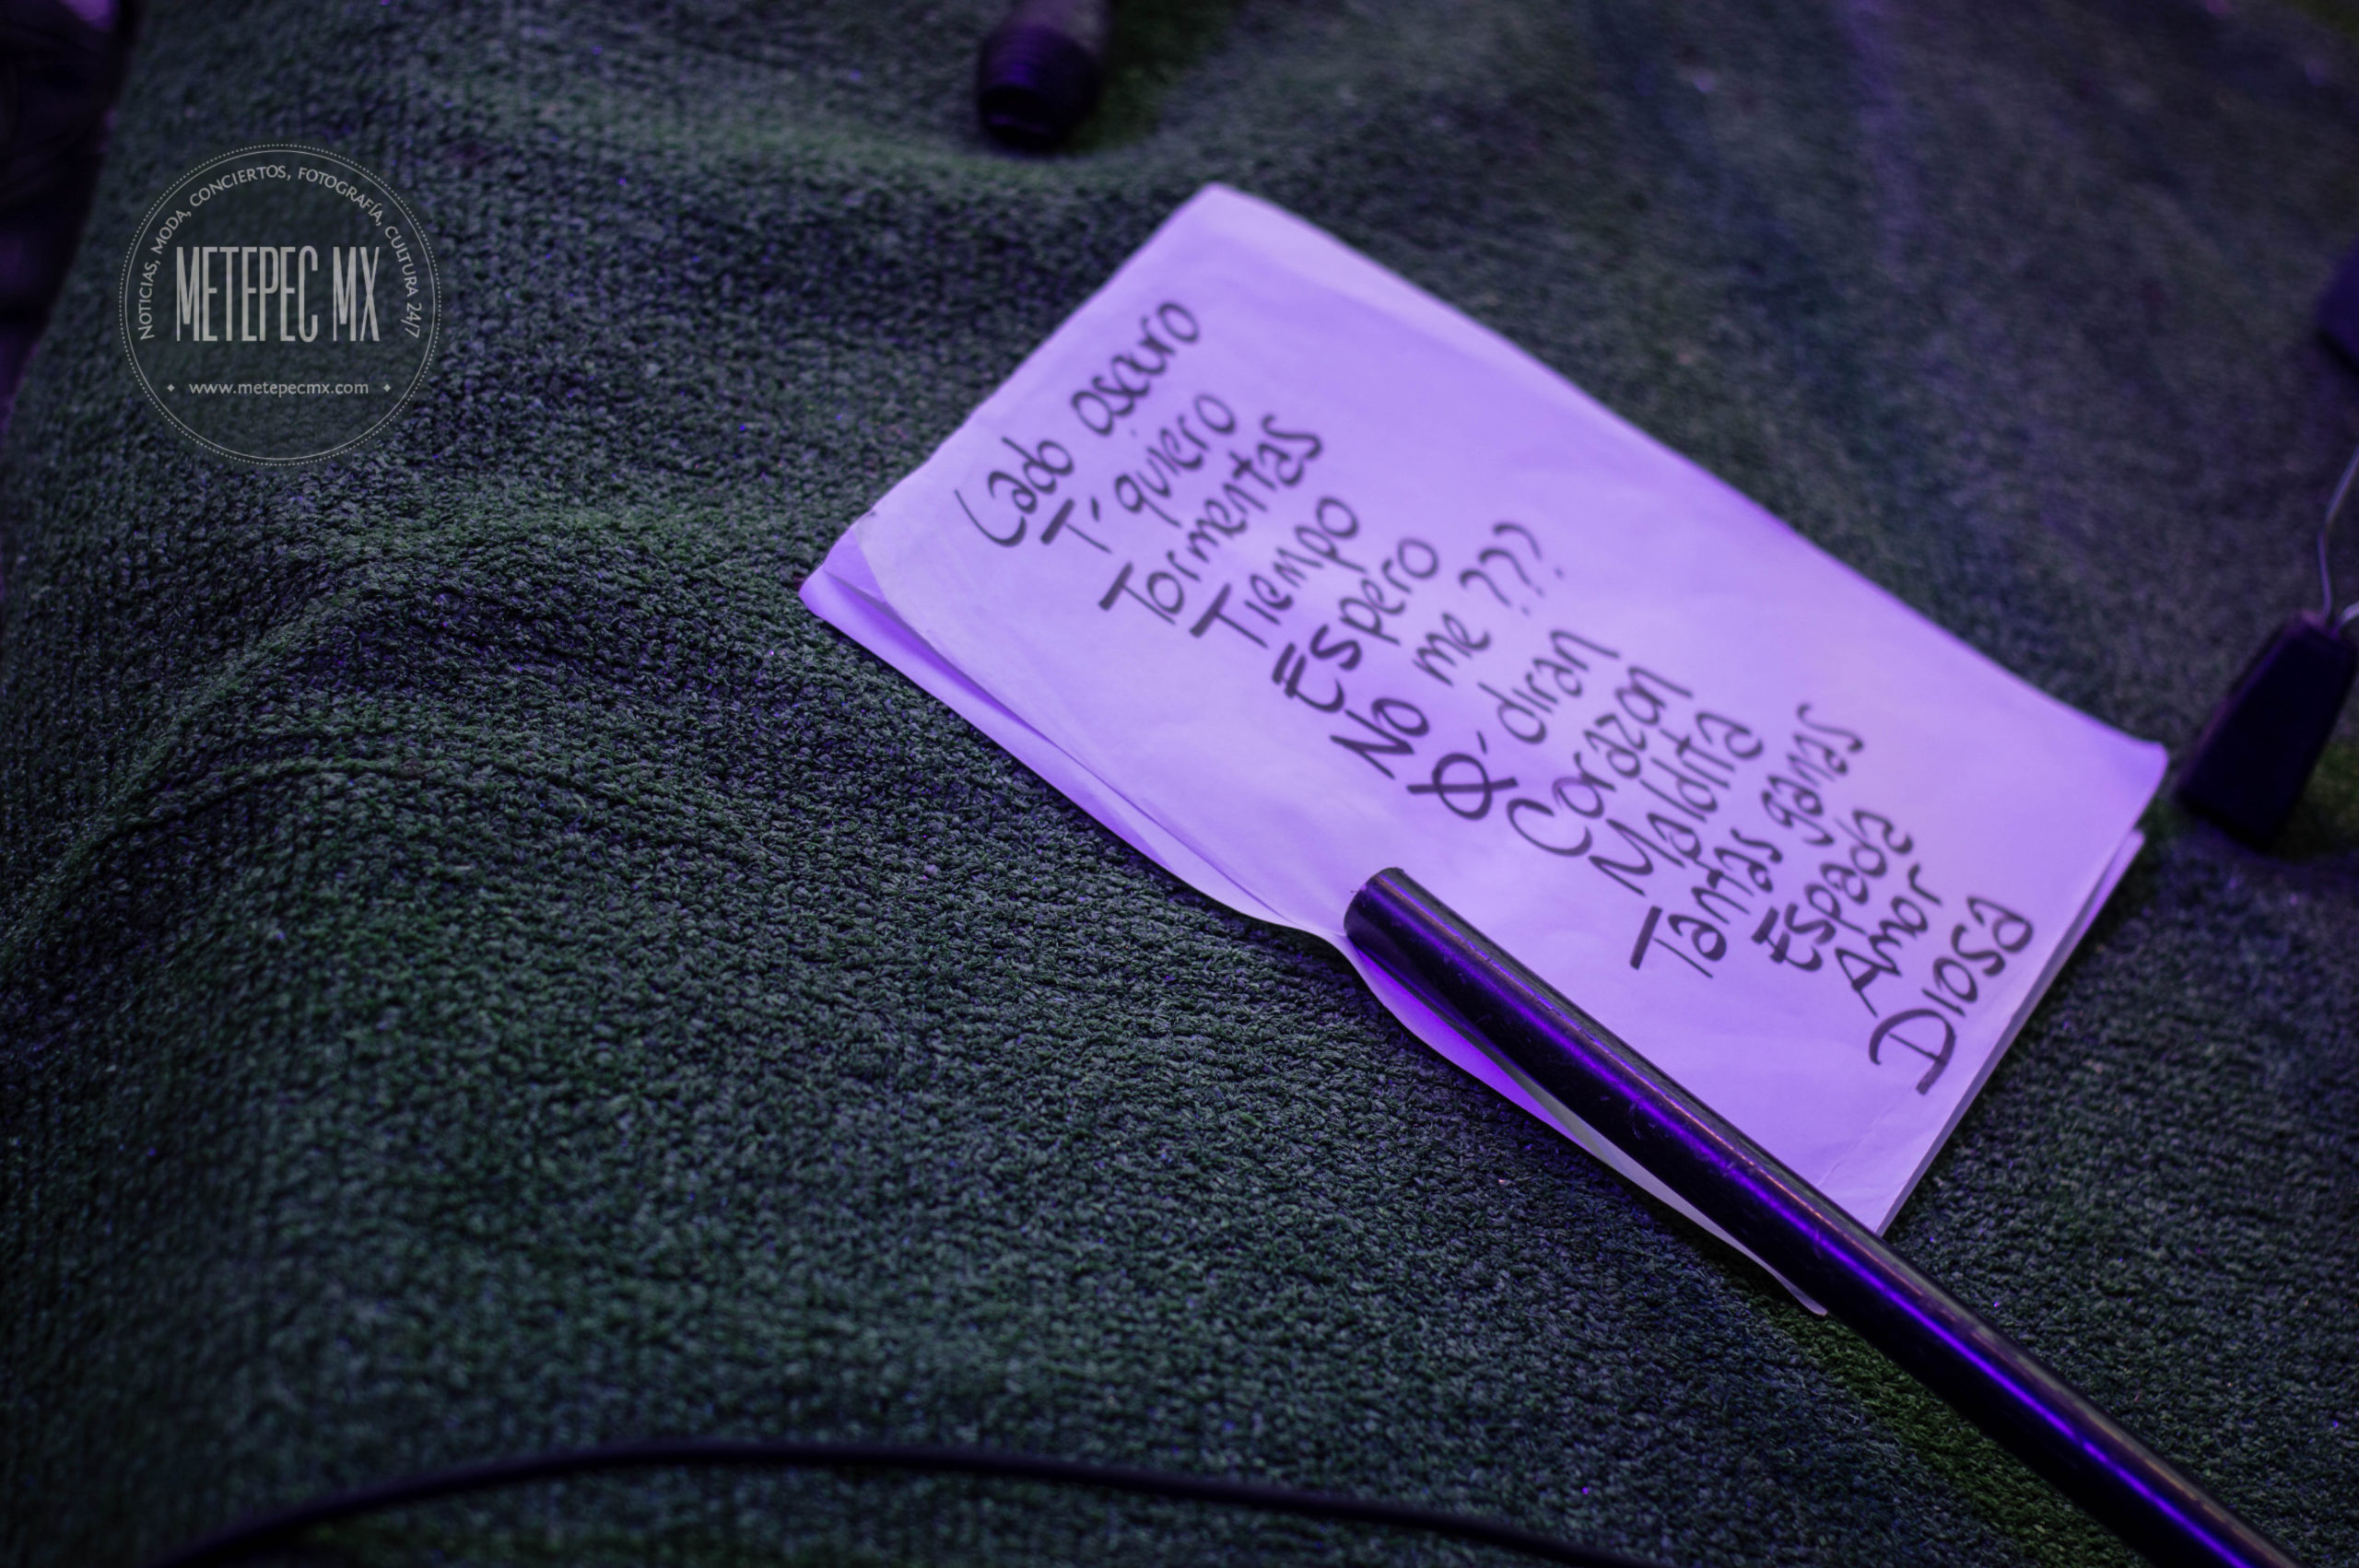 NOTICIAS, MODA, CONCIERTOS, FOTOGRAFÍA, CULTURA 24/7
METEPEC MX
www.metepecmx.com
Lado oscuro
T' quiero
Tormentas
Tiempo
Espero
No me ???
Q' diran
Corazon
Maldita
Tantas ganas
Espada
Amor
Diosa